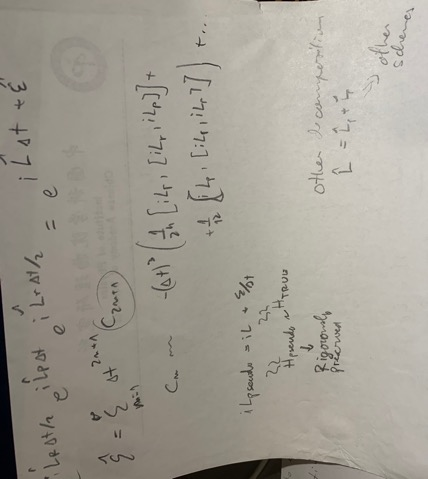 e^{iL_r Δt/2} e^{iL_p Δt} e^{iL_r Δt/2} = e^{iLΔt + ε̂}
ε̂ = Σ_{n=1}^{∞} Δt^{2n+1} C_{2n+1}
-(Δt)³ ( 1/24 [iL_r, [iL_r, iL_p]] +
+ 1/12 [iL_p, [iL_r, iL_p]] ) + ...
iL_pseudo = iL + ε/Δt
H_pseudo ~ H_TRUE
↓
Rigorously
preserved
other decomposition
L̂ = L̂_1 + L̂_r
⇒ other
schemes